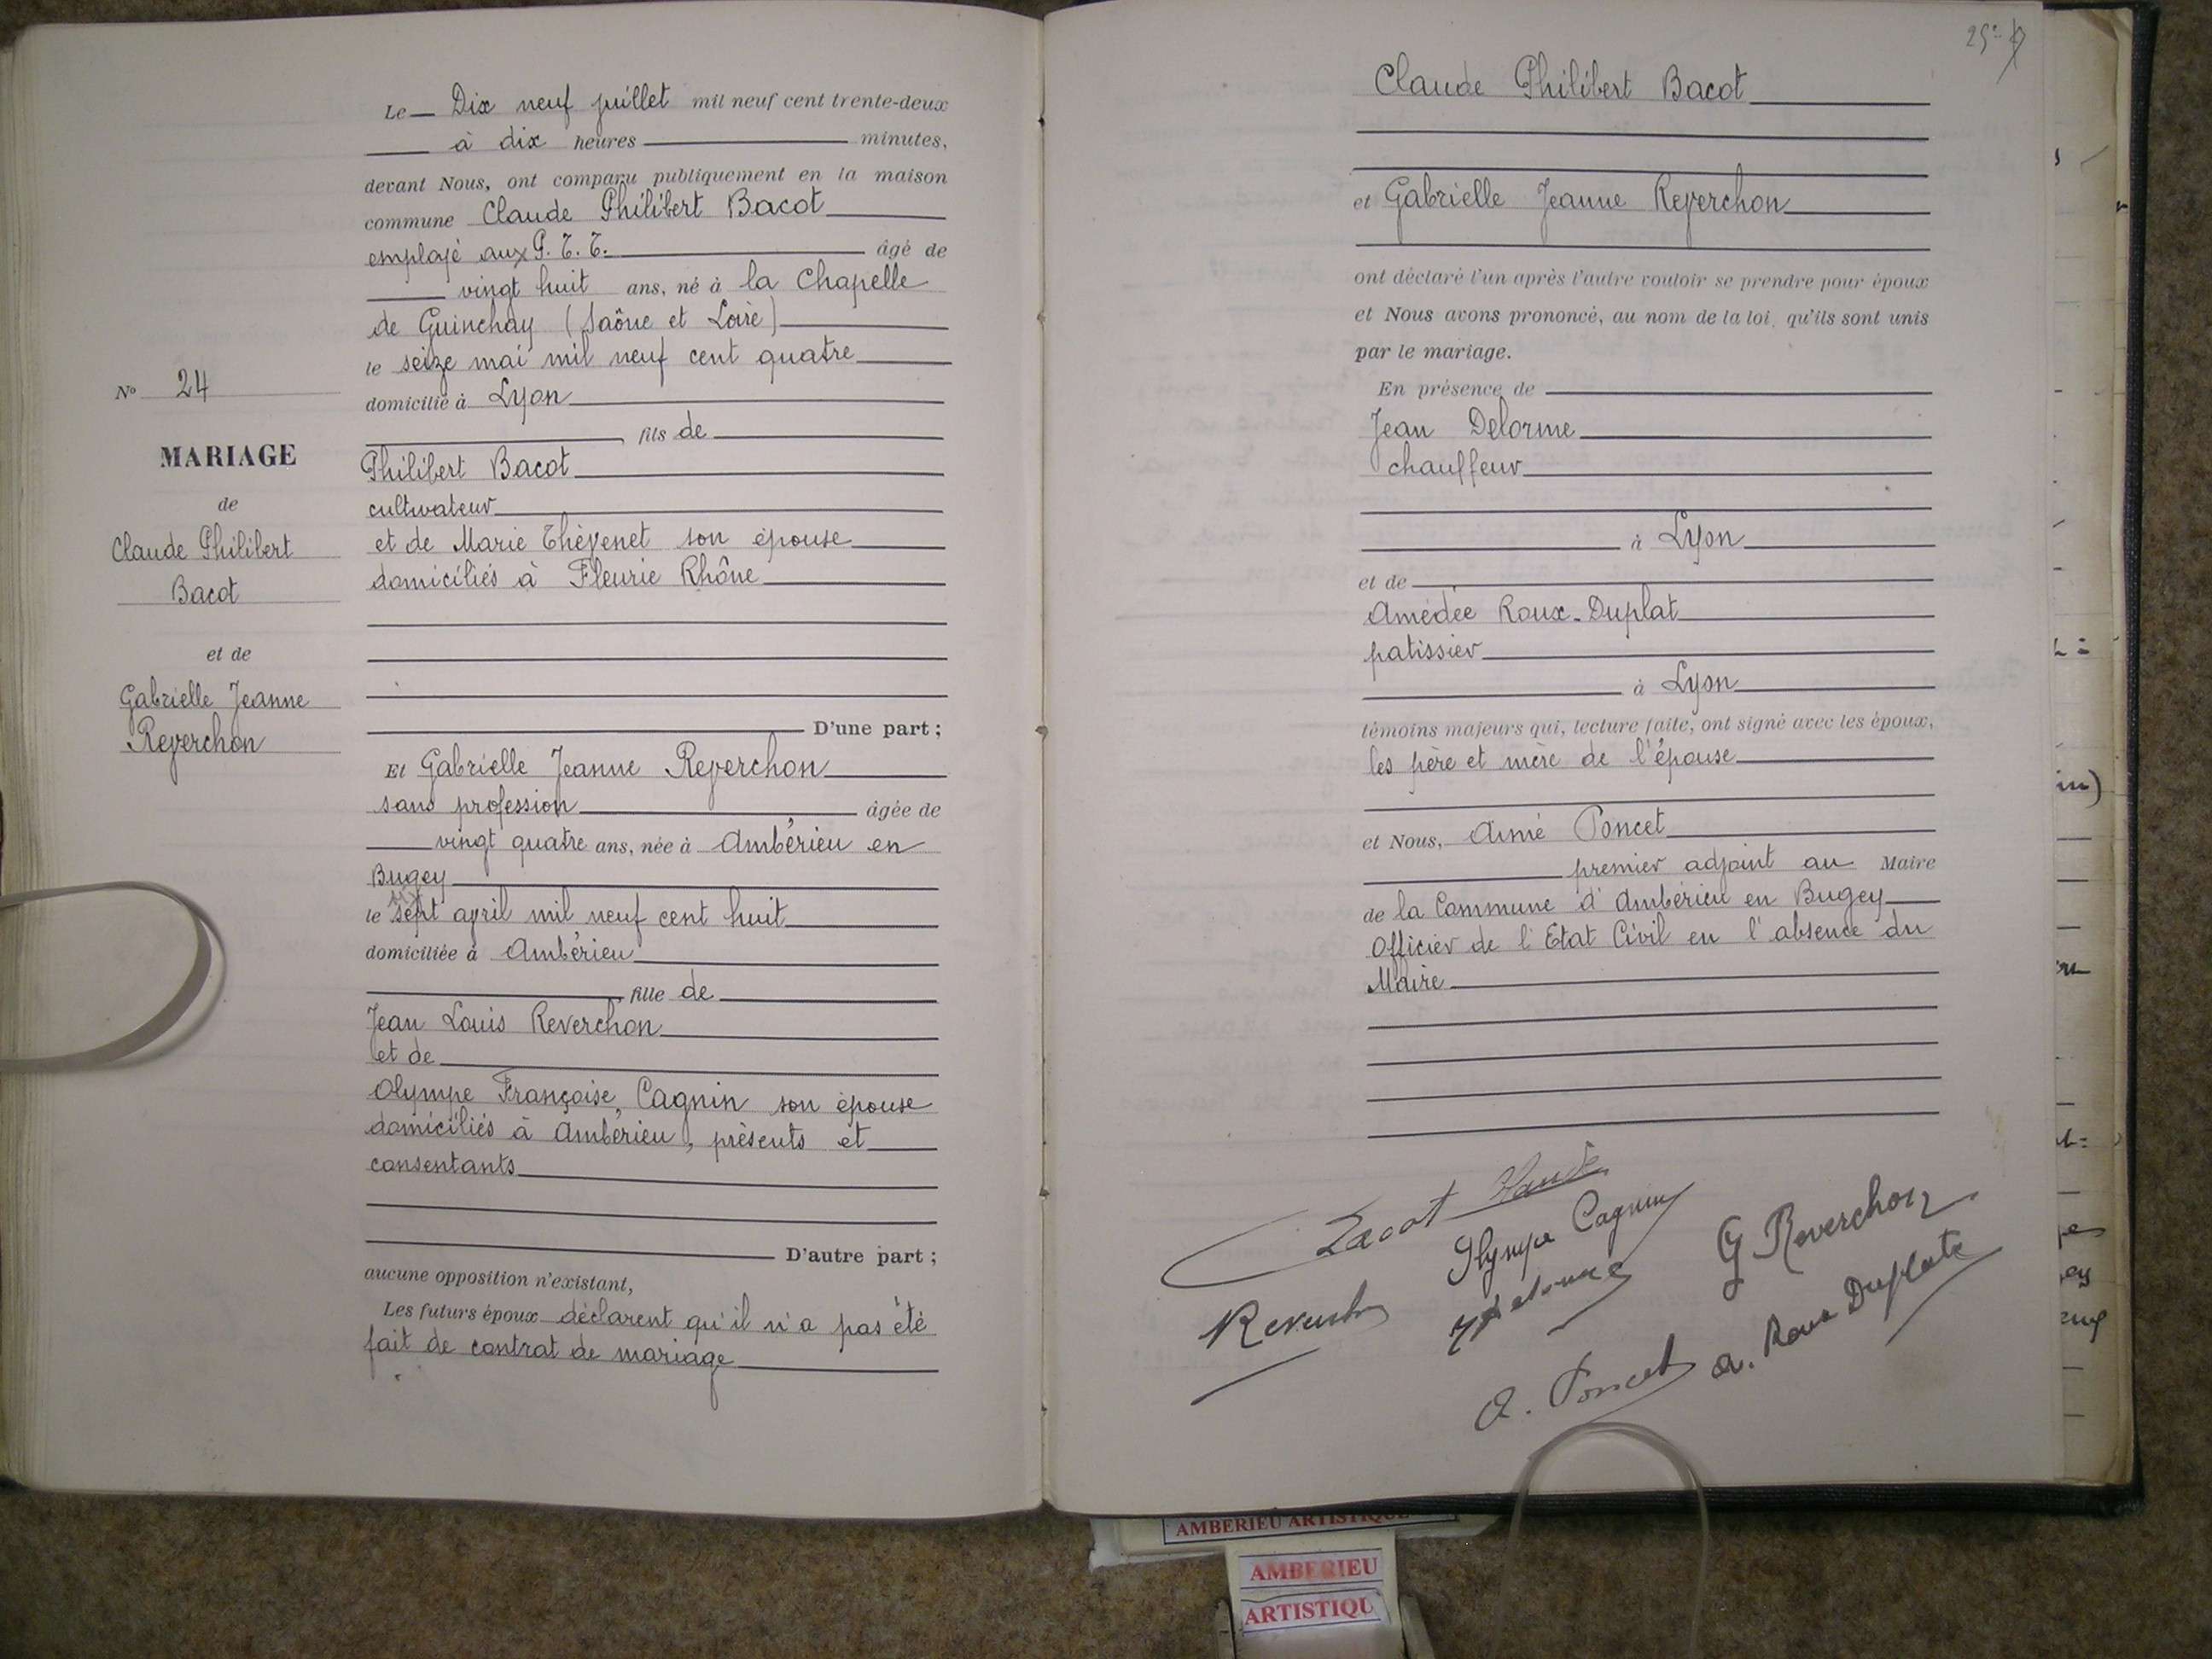 Le Dix neuf juillet mil neuf cent trente-deux
à dix heures minutes,
devant Nous, ont comparu publiquement en la maison
commune Claude Philibert Bacot
employé aux P.T.T. âgé de
vingt huit ans, né à la Chapelle
de Guinchay (Saône et Loire)
le seize mai mil neuf cent quatre
domicilié à Lyon
fils de
Philibert Bacot
cultivateur
et de Marie Thévenet son épouse
domiciliés à Fleurie Rhône
D'une part ;
Et Gabrielle Jeanne Reverchon
sans profession âgée de
vingt quatre ans, née à Ambérieu en
Bugey
le sept avril mil neuf cent huit
domiciliée à Ambérieu
fille de
Jean Louis Reverchon
et de
Olympe Françoise, Cagnin son épouse
domiciliés à Ambérieu, présents et
consentants
D'autre part ;
aucune opposition n'existant,
Les futurs époux déclarent qu'il n'a pas été
fait de contrat de mariage
N° 24
MARIAGE
de
Claude Philibert
Bacot
et de
Gabrielle Jeanne
Reverchon
Claude Philibert Bacot
et Gabrielle Jeanne Reverchon
ont déclaré l'un après l'autre vouloir se prendre pour époux
et Nous avons prononcé, au nom de la loi, qu'ils sont unis
par le mariage.
En présence de
Jean Delorme
chauffeur
à Lyon
et de
Amédée Roux-Duplat
patissier
à Lyon
témoins majeurs qui, lecture faite, ont signé avec les époux,
les père et mère de l'épouse
et Nous, Aimé Poncet
premier adjoint au Maire
de la Commune d'Ambérieu en Bugey
Officier de l'Etat Civil en l'absence du
Maire
Bacot Claude
Olympe Cagnin
G Reverchon
Reverchon
A. Poncet
a. Roux Duplat
AMBERIEU ARTISTIQUE
AMBERIEU
ARTISTIQU